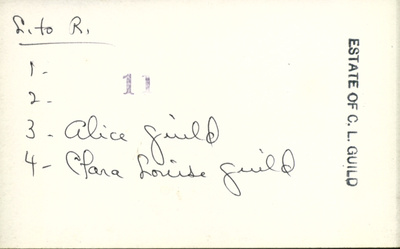 L. to R.
1-
11
2-
3- Alice Guild
4- Clara Louise Guild
ESTATE OF C. L. GUILD